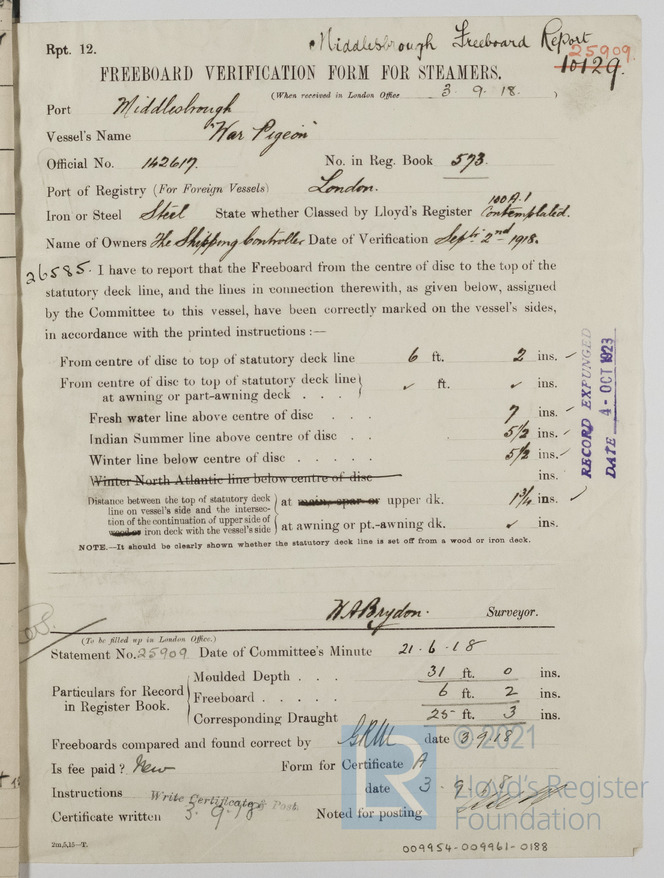 Rpt. 12.
Middlesbrough Freeboard Report
25909.
10129.
FREEBOARD VERIFICATION FORM FOR STEAMERS.
(When received in London Office 3. 9. 18. )
Port Middlesbrough
Vessel's Name "War Pigeon"
Official No. 142617. No. in Reg. Book 573.
Port of Registry (For Foreign Vessels) London.
Iron or Steel Steel State whether Classed by Lloyd's Register 100 A.1 Contemplated.
Name of Owners The Shipping Controller Date of Verification Sept. 2nd 1918.
26585. I have to report that the Freeboard from the centre of disc to the top of the
statutory deck line, and the lines in connection therewith, as given below, assigned
by the Committee to this vessel, have been correctly marked on the vessel's sides,
in accordance with the printed instructions :—
From centre of disc to top of statutory deck line 6 ft. 2 ins. ✓
From centre of disc to top of statutory deck line
at awning or part-awning deck . . . ✓ ft. ✓ ins.
Fresh water line above centre of disc . . . 7 ins. ✓
Indian Summer line above centre of disc . . 5 1/2 ins. ✓
Winter line below centre of disc . . . . . 5 1/2 ins. ✓
Winter North Atlantic line below centre of disc ins.
Distance between the top of statutory deck
line on vessel's side and the intersec-
tion of the continuation of upper side of
wood or iron deck with the vessel's side
at main, spar or upper dk. 1 3/4 ins. ✓
at awning or pt.-awning dk. ✓ ins.
NOTE.—It should be clearly shown whether the statutory deck line is set off from a wood or iron deck.
RECORD EXPUNGED
DATE 4 - OCT 1923
W A Brydon. Surveyor.
(To be filled up in London Office.)
Statement No. 25909 Date of Committee's Minute 21. 6. 18
Particulars for Record
in Register Book.
Moulded Depth . . . 31 ft. 0 ins.
Freeboard . . . . . 6 ft. 2 ins.
Corresponding Draught 25 ft. 3 ins.
Freeboards compared and found correct by GRW date 3.9.18
Is fee paid? New Form for Certificate A
Instructions Write Certificate & Post. date 3. 9. 18
Certificate written 3. 9. 18 Noted for posting
2m,5,15—T.
009954-009961-0188
© 2021
Lloyd's Register
Foundation
LR